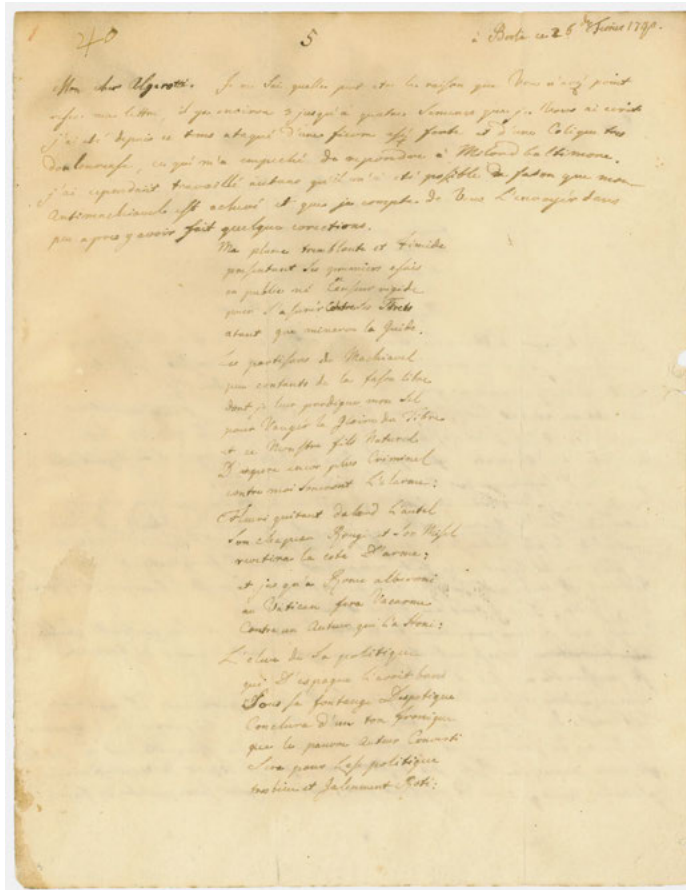 5
à Berlin ce 26 de Fevrier 1740.
Mon cher Algaroti. Je ne sai quelle peut etre la raison que Vous n'avez point
resue mes lettres, il y a environ 3 jusqu'a quatre Semenes que je Vous ai ecrit
j'ai été depuis ce tems ataqué d'une fievre assez forte et d'une Colique tres
douloureuse, ce qui m'a empeché de repondre à Milord baltimore.
j'ai cependant travaillé autans qu'il m'a eté posible de fason que mon
Antimachiavele est achevé et que je compte de Vous L'envoyér dans
peu apres y avoir fait quelques corections.
Ma plume tremblante et timide
presentant Ses premiers essais
au public né Censeur rigide
pour S'assurér Contre les Trets
atent que minerve la Guide.
Les partisans de Machiavel
peu contents de la fason libre
dont je leur prodigue mon Sel
pour Vangér la Gloire du Tibre
et ce Monstre fils Naturel
D'un pere encor plus Criminel
contre moi Soneront L'alarme;
Fleuri quitant dabord L'autel
Son chapeau Rouge et Son Misel
vectira la cote D'arme;
et jusqu'a Rome alberoni
au Vatican fera Vacarme
Contre un Auteur qui l'a Honi;
L'eleve de Sa politique
qui D'espagne
Sous Sa fontange Despotique
Conclura d'un ton Ironique
que le pauvre Auteur Converti
Sera pour Lase politique
tres bien et Galenment Roti;